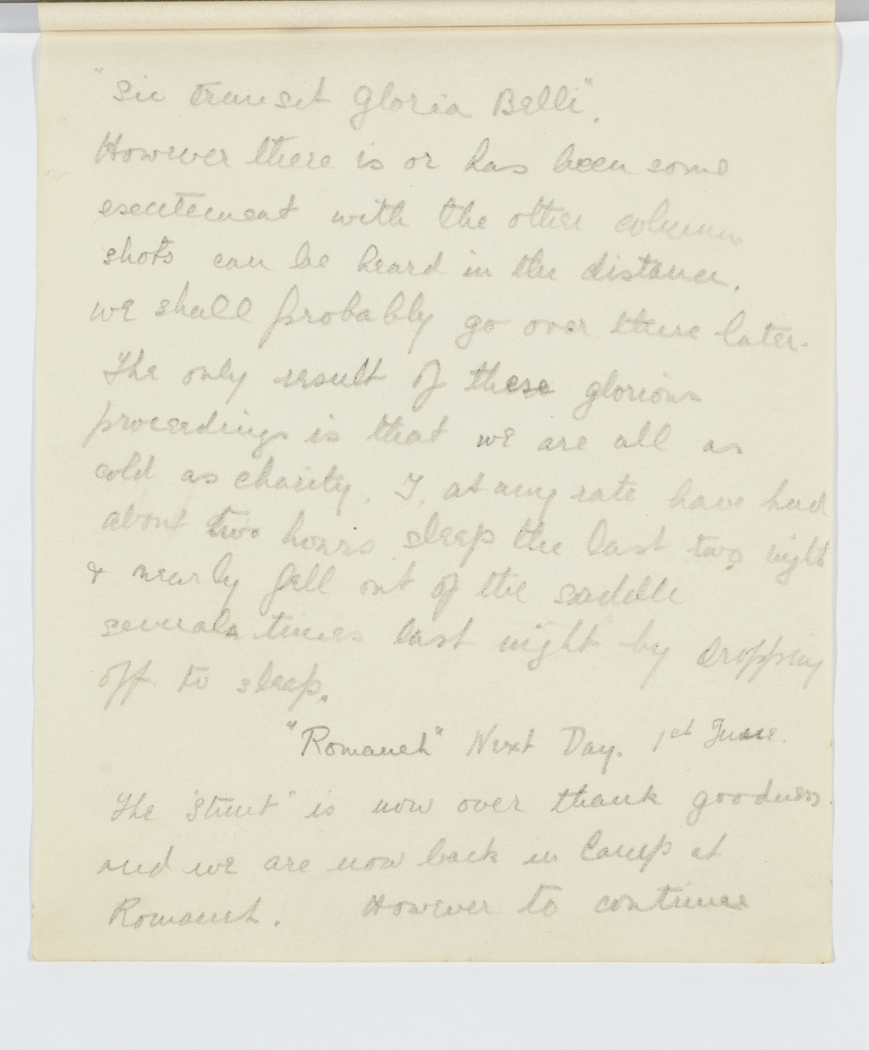 "Sic transit gloria Belli".
However there is or has been some
excitement with the other column
shots can be heard in the distance.
we shall probably go over there later.
The only result of these glorious
proceedings is that we are all as
cold as charity. I, at any rate have had
about two hours sleep the last two night
& nearly fell out of the saddle
several times last night by dropping
off to sleep.
"Romaneh" Next Day. 1st June.
The "Stunt" is now over thank goodness.
and we are now back in Camp at
Romaneh. However to continue